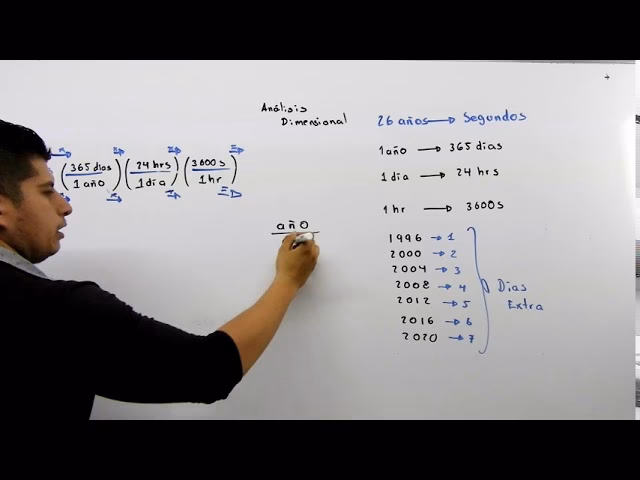 Análisis
Dimensional
26 años → Segundos
1 año → 365 dias
1 dia → 24 hrs
1 hr → 3600s
(365 dias / 1 año) (24 hrs / 1 dia) (3600 s / 1 hr)
año
1996 → 1
2000 → 2
2004 → 3
2008 → 4
2012 → 5
2016 → 6
2020 → 7
Dias
Extra